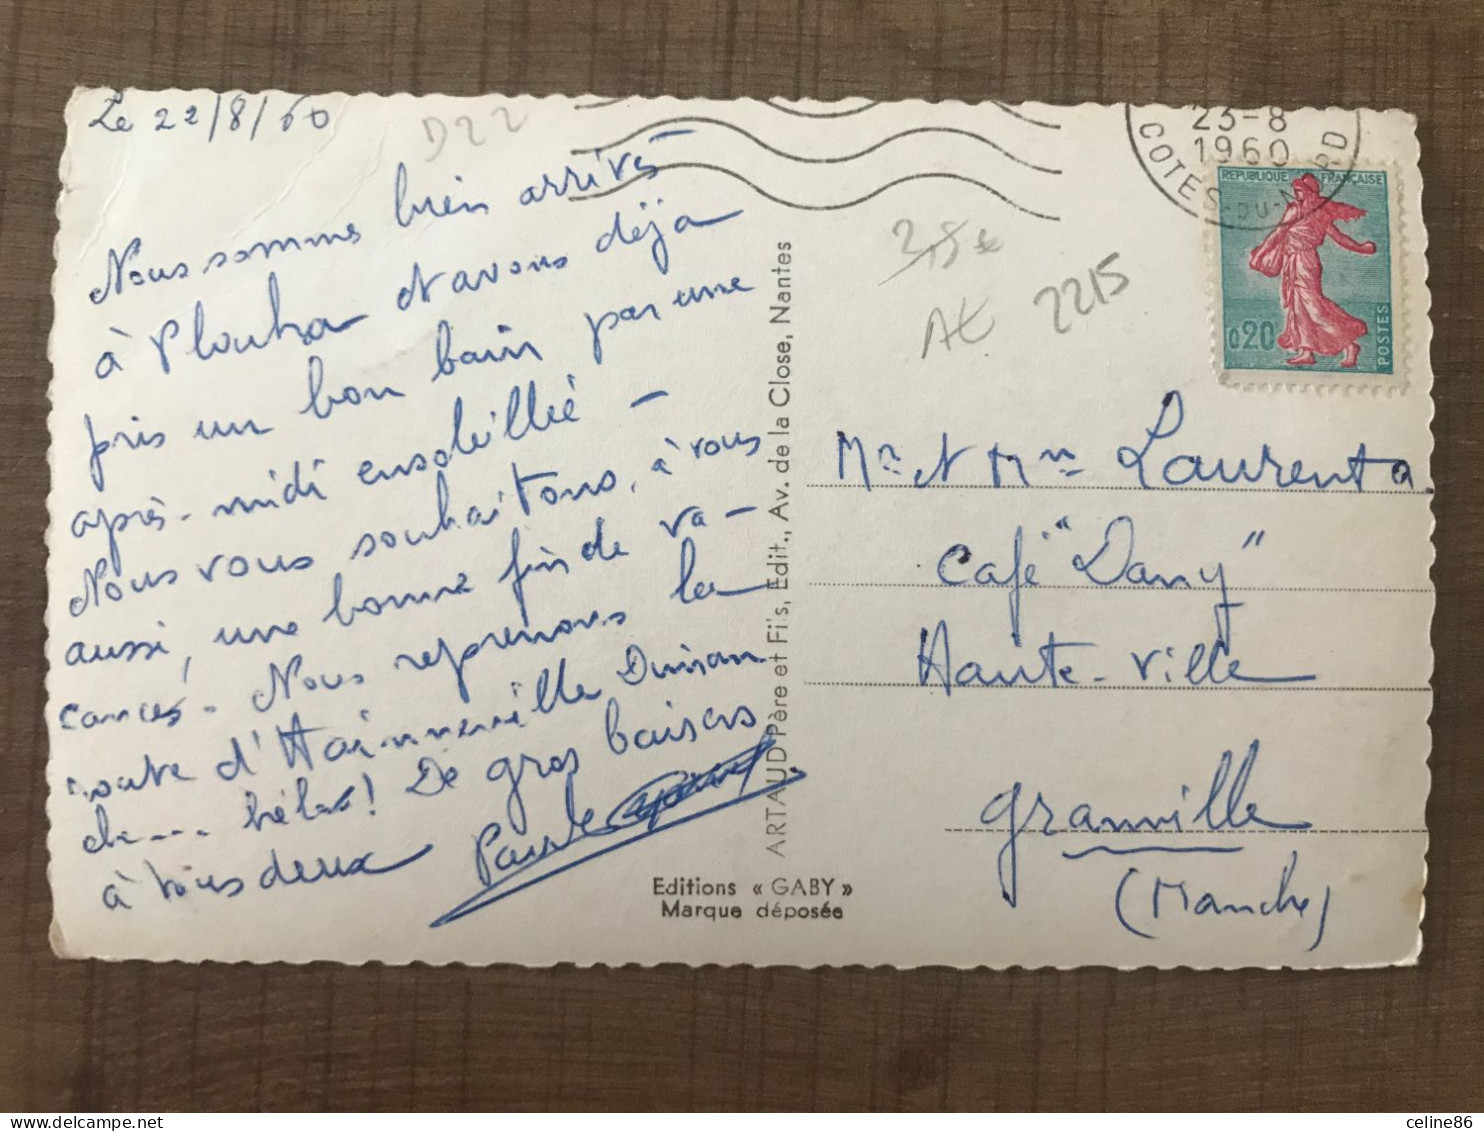 Le 22/8/60
D22
Nous sommes bien arrivés
à Plouha et avons déjà
pris un bon bain par une
après-midi ensoleillée -
Nous vous souhaitons, à vous
aussi, une bonne fin de va-
cances. Nous reprenons la
route d'Hainneville Diman
che... hélas! De gros baisers
à vous deux
Paule
23-8
1960
COTES-DU-NORD
REPUBLIQUE FRANÇAISE
0.20
POSTES
AC 2215
Mr et Mme Laurent
Café "Dany"
Haute-Ville
Granville
(Manche)
ARTAUD Père et Fils, Edit., Av. de la Close, Nantes
Editions « GABY »
Marque déposée
delcampe.net
celine86